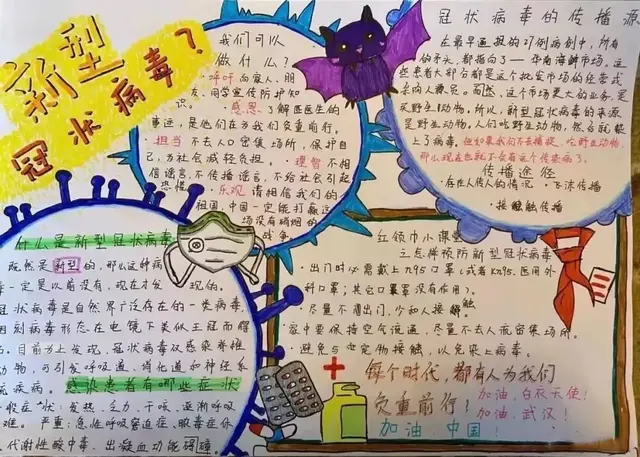 新型
冠状病毒？
我们可以
做什么？
呼吁向家人、朋
友、同学宣传防护知
识。感恩了解医医生的
事迹，是他们在为我们负重前行。
担当不去人口密集场所，保护自
己，为社会减轻负担。理智不相
信谣言，不传播谣言，不给社会引起
恐慌。乐观请相信我们的
祖国，中国一定能打赢这
场没有硝烟的
战争。
冠状病毒的传播源
在最早通报的例病例中，所有
的矛头，都指向了一华南海鲜市场。这
些患者大部分都是这个批发市场的经营或
采购人员。而然，这个市场更大的业务，是
买野生动物。所以，新型冠状病毒的来源
是野生动物。人们吃野生动物，然后就
上了病毒。但如果我们不去捕捉、吃野生动物，
那么现在也就不会有这个传染病了。
传播途径
·存在人传人的情况 ·飞沫传播
·接触传播
什么是新型冠状病毒
既然是新型的，那么这种病
毒一定是以前没有，现在才发
现的。
冠状病毒是自然界广泛存在的一类病毒，
因别病毒形态在电镜下类似王冠而
目前为止发现，冠状病毒仅感染脊椎
动物，可引发呼吸道、消化道和神经系
统疾病。感染患者有哪些症状
一般症状：发热、乏力、干咳、逐渐呼吸
难。严重：急性呼吸窘迫症、脓毒症休
代谢性酸中毒、出凝血功能碍障
红领巾小课堂
之怎样预防新型冠状病毒
·出门时必需戴上n95口罩（或者Kn95，医用外
科口罩；其它口罩没有作用）。
·尽量不溜出门，少和人接触。
·家中要保持空气流通，尽量不去人流密集场所。
·避免与宠物接触，以免染上病毒。
每个时代，都有人为我们
负重前行！
加油，白衣天使！
加油，武汉！
加油 中国！